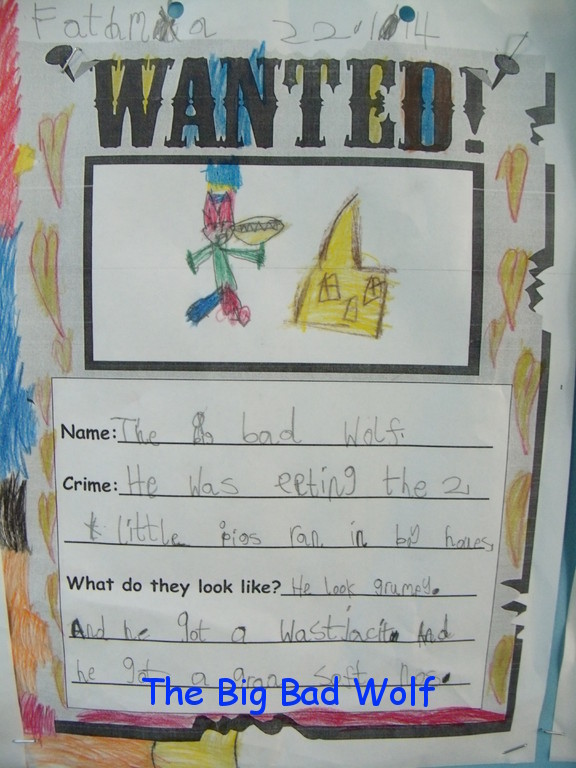 Fatama 22.1.14
WANTED!
Name: The bad Wolf.
Crime: He was eeting the 2
little pigs ran in by houes,
What do they look like? He look grumey.
And he got a wastJacit And
he got a gran soft
The Big Bad Wolf